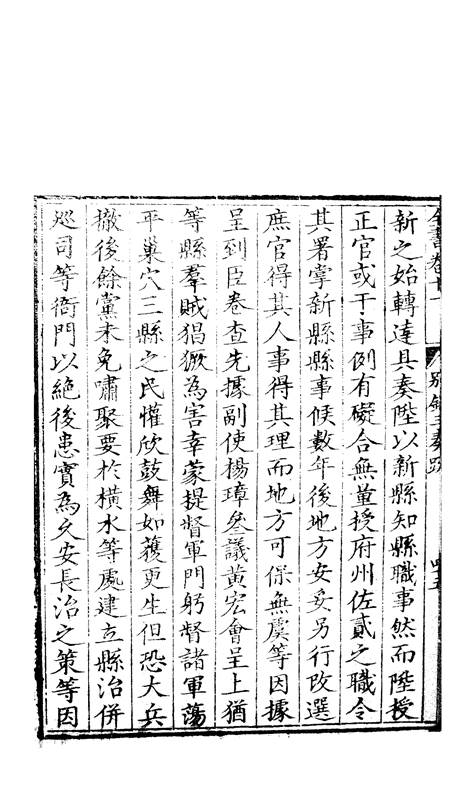 全書卷十一 別錄三奏疏 四十五
新之始轉達具奏陞以新縣知縣職事然而陞授
正官或于事例有礙合無量授府州佐貳之職令
其署掌新縣縣事候數年後地方安妥另行改選
庶官得其人事得其理而地方可保無虞等因據
呈到臣卷查先據副使楊璋叅議黃宏會呈上猶
等縣羣賊猖獗為害幸蒙提督軍門躬督諸軍蕩
平巢穴三縣之民懽欣鼓舞如獲更生但恐大兵
撤後餘黨未免嘯聚要於橫水等處建立縣治併
廵司等衙門以絕後患實為久安長治之策等因